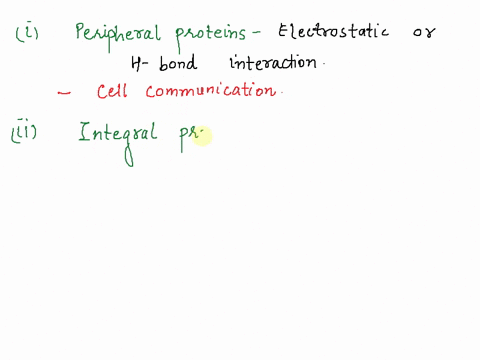 (i) Peripheral proteins - Electrostatic or
H-bond interaction.
- Cell communication.
(ii) Integral pr